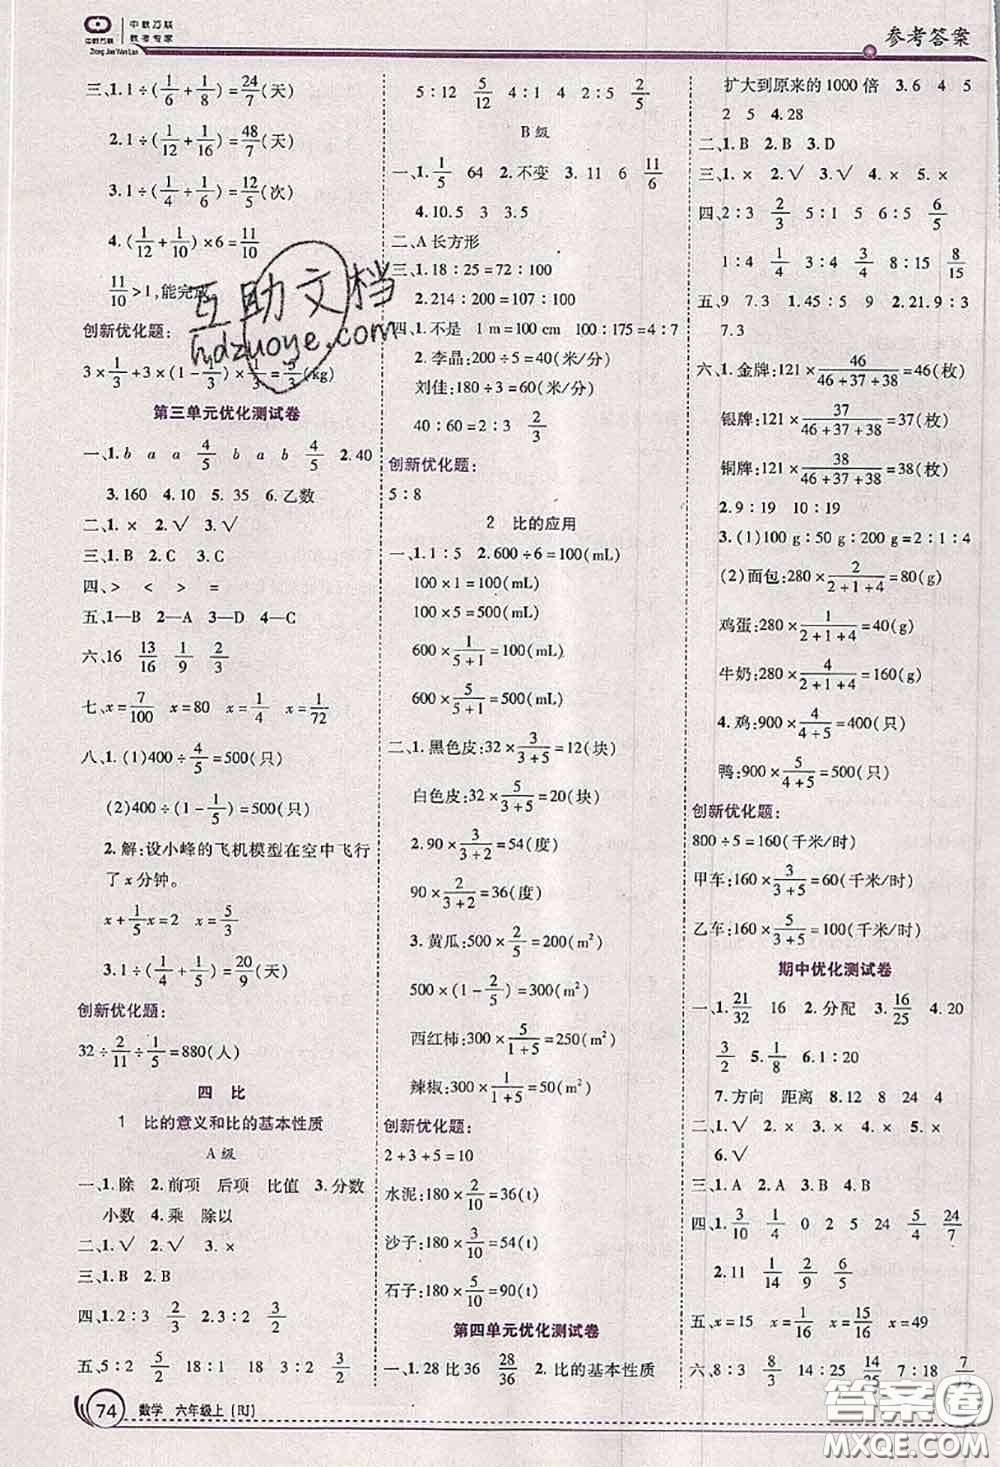 中教万联
中教万联
教考专家
Zhong Jiao Wan Lian
参考答案
三、1. 1÷(1/6+1/8)=24/7(天)
2. 1÷(1/12+1/16)=48/7(天)
3. 1÷(1/4+1/6)=12/5(次)
4. (1/12+1/10)×6=11/10
11/10>1,能完成
创新优化题:
3×1/3+3×(1-1/3)×1/3=5/3(kg)
第三单元优化测试卷
一、1. b a a 4/5 b a b 4/5 2. 40
3. 160 4. 10 5. 35 6. 乙数
二、1. × 2. √ 3. √
三、1. B 2. C 3. C
四、> < > =
五、1—B 2—A 3—D 4—C
六、16 13/16 1/9 2/3
七、x=7/100 x=80 x=1/4 x=1/72
八、1. (1)400÷4/5=500(只)
(2)400÷(1-1/5)=500(只)
2. 解:设小峰的飞机模型在空中飞行
了 x 分钟。
x+1/5x=2 x=5/3
3. 1÷(1/4+1/5)=20/9(天)
创新优化题:
32÷2/11÷1/5=880(人)
四 比
1 比的意义和比的基本性质
A 级
一、1. 除 2. 前项 后项 比值 3. 分数
小数 4. 乘 除以
二、1. √ 2. √ 3. ×
三、1. B 2. B
四、1. 2:3 2/3 2. 3:2 3/2
五、5:2 5/2 18:1 18 3:2 3/2
5:12 5/12 4:1 4 2:5 2/5
B 级
一、1. 1/5 64 2. 不变 3. 11 6 11/6
4. 10.5 3 3.5
二、A 长方形
三、1. 18:25=72:100
2. 214:200=107:100
四、1. 不是 1 m=100 cm 100:175=4:7
2. 李晶:200÷5=40(米/分)
刘佳:180÷3=60(米/分)
40:60=2:3 2/3
创新优化题:
5:8
2 比的应用
一、1. 1:5 2. 600÷6=100(mL)
100×1=100(mL)
100×5=500(mL)
600×1/(5+1)=100(mL)
600×5/(5+1)=500(mL)
二、1. 黑色皮:32×3/(3+5)=12(块)
白色皮:32×5/(3+5)=20(块)
2. 90×3/(3+2)=54(度)
90×2/(3+2)=36(度)
3. 黄瓜:500×2/5=200(m²)
500×(1-2/5)=300(m²)
西红柿:300×5/(1+5)=250(m²)
辣椒:300×1/(1+5)=50(m²)
创新优化题:
2+3+5=10
水泥:180×2/10=36(t)
沙子:180×3/10=54(t)
石子:180×5/10=90(t)
第四单元优化测试卷
一、1. 28 比 36 28/36 2. 比的基本性质
扩大到原来的 1000 倍 3. 6 4 5
2 5 4. 28
二、1. B 2. B 3. D
三、1. × 2. √ 3. √ 4. × 5. ×
四、2:3 2/3 5:1 5 6:5 6/5
1:4 1/4 3:4 3/4 8:15 8/15
五、9 7.3 1. 45:5 9 2. 21.9:3
7.3
六、1. 金牌:121×46/(46+37+38)=46(枚)
银牌:121×37/(46+37+38)=37(枚)
铜牌:121×38/(46+37+38)=38(枚)
2. 9:19 10:19
3. (1)100 g:50 g:200 g=2:1:4
(2)面包:280×2/(2+1+4)=80(g)
鸡蛋:280×1/(2+1+4)=40(g)
牛奶:280×4/(2+1+4)=160(g)
4. 鸡:900×4/(4+5)=400(只)
鸭:900×5/(4+5)=500(只)
创新优化题:
800÷5=160(千米/时)
甲车:160×3/(3+5)=60(千米/时)
乙车:160×5/(3+5)=100(千米/时)
期中优化测试卷
一、1. 21/32 16 2. 分配 3. 16/25 4. 20
3/2 5. 1/8 6. 1:20
7. 方向 距离 8. 12 8 24 4
二、1. √ 2. × 3. × 4. × 5. ×
6. √
三、1. A 2. A 3. A 4. A
四、1. 3/10 1/4 0 2 5 24 5/4 24/7
2. 11 1/14 2/9 6/5
五、x=15 x=1/16 x=15/16 x=49
六、8:3 8/3 14:25 14/25 7:18
74 数学 六年级上(RJ)
互助文档
hdzuoye.com
答案圈
MXQE.COM